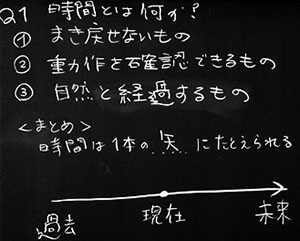 Q1 時間とは何か?
① まき戻せないもの
② 動作を確認できるもの
③ 自然と経過するもの
<まとめ>
時間は1本の 矢 にたとえられる
過去 現在 未来